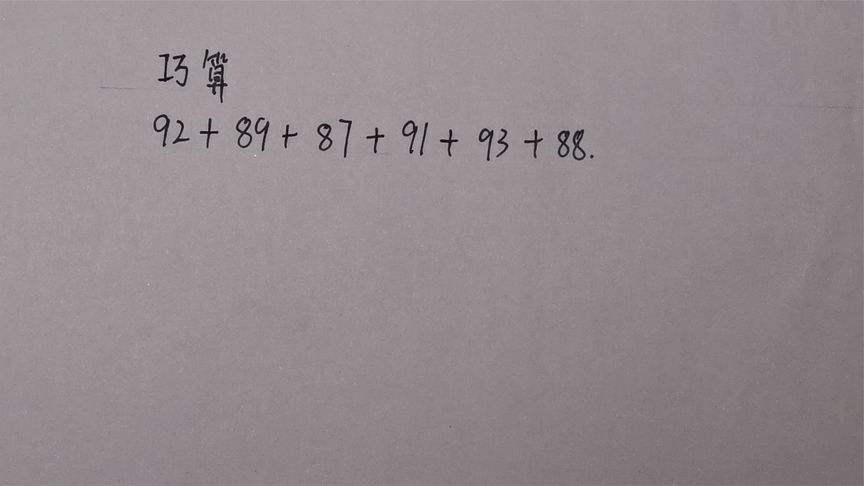 巧算
92+89+87+91+93+88.